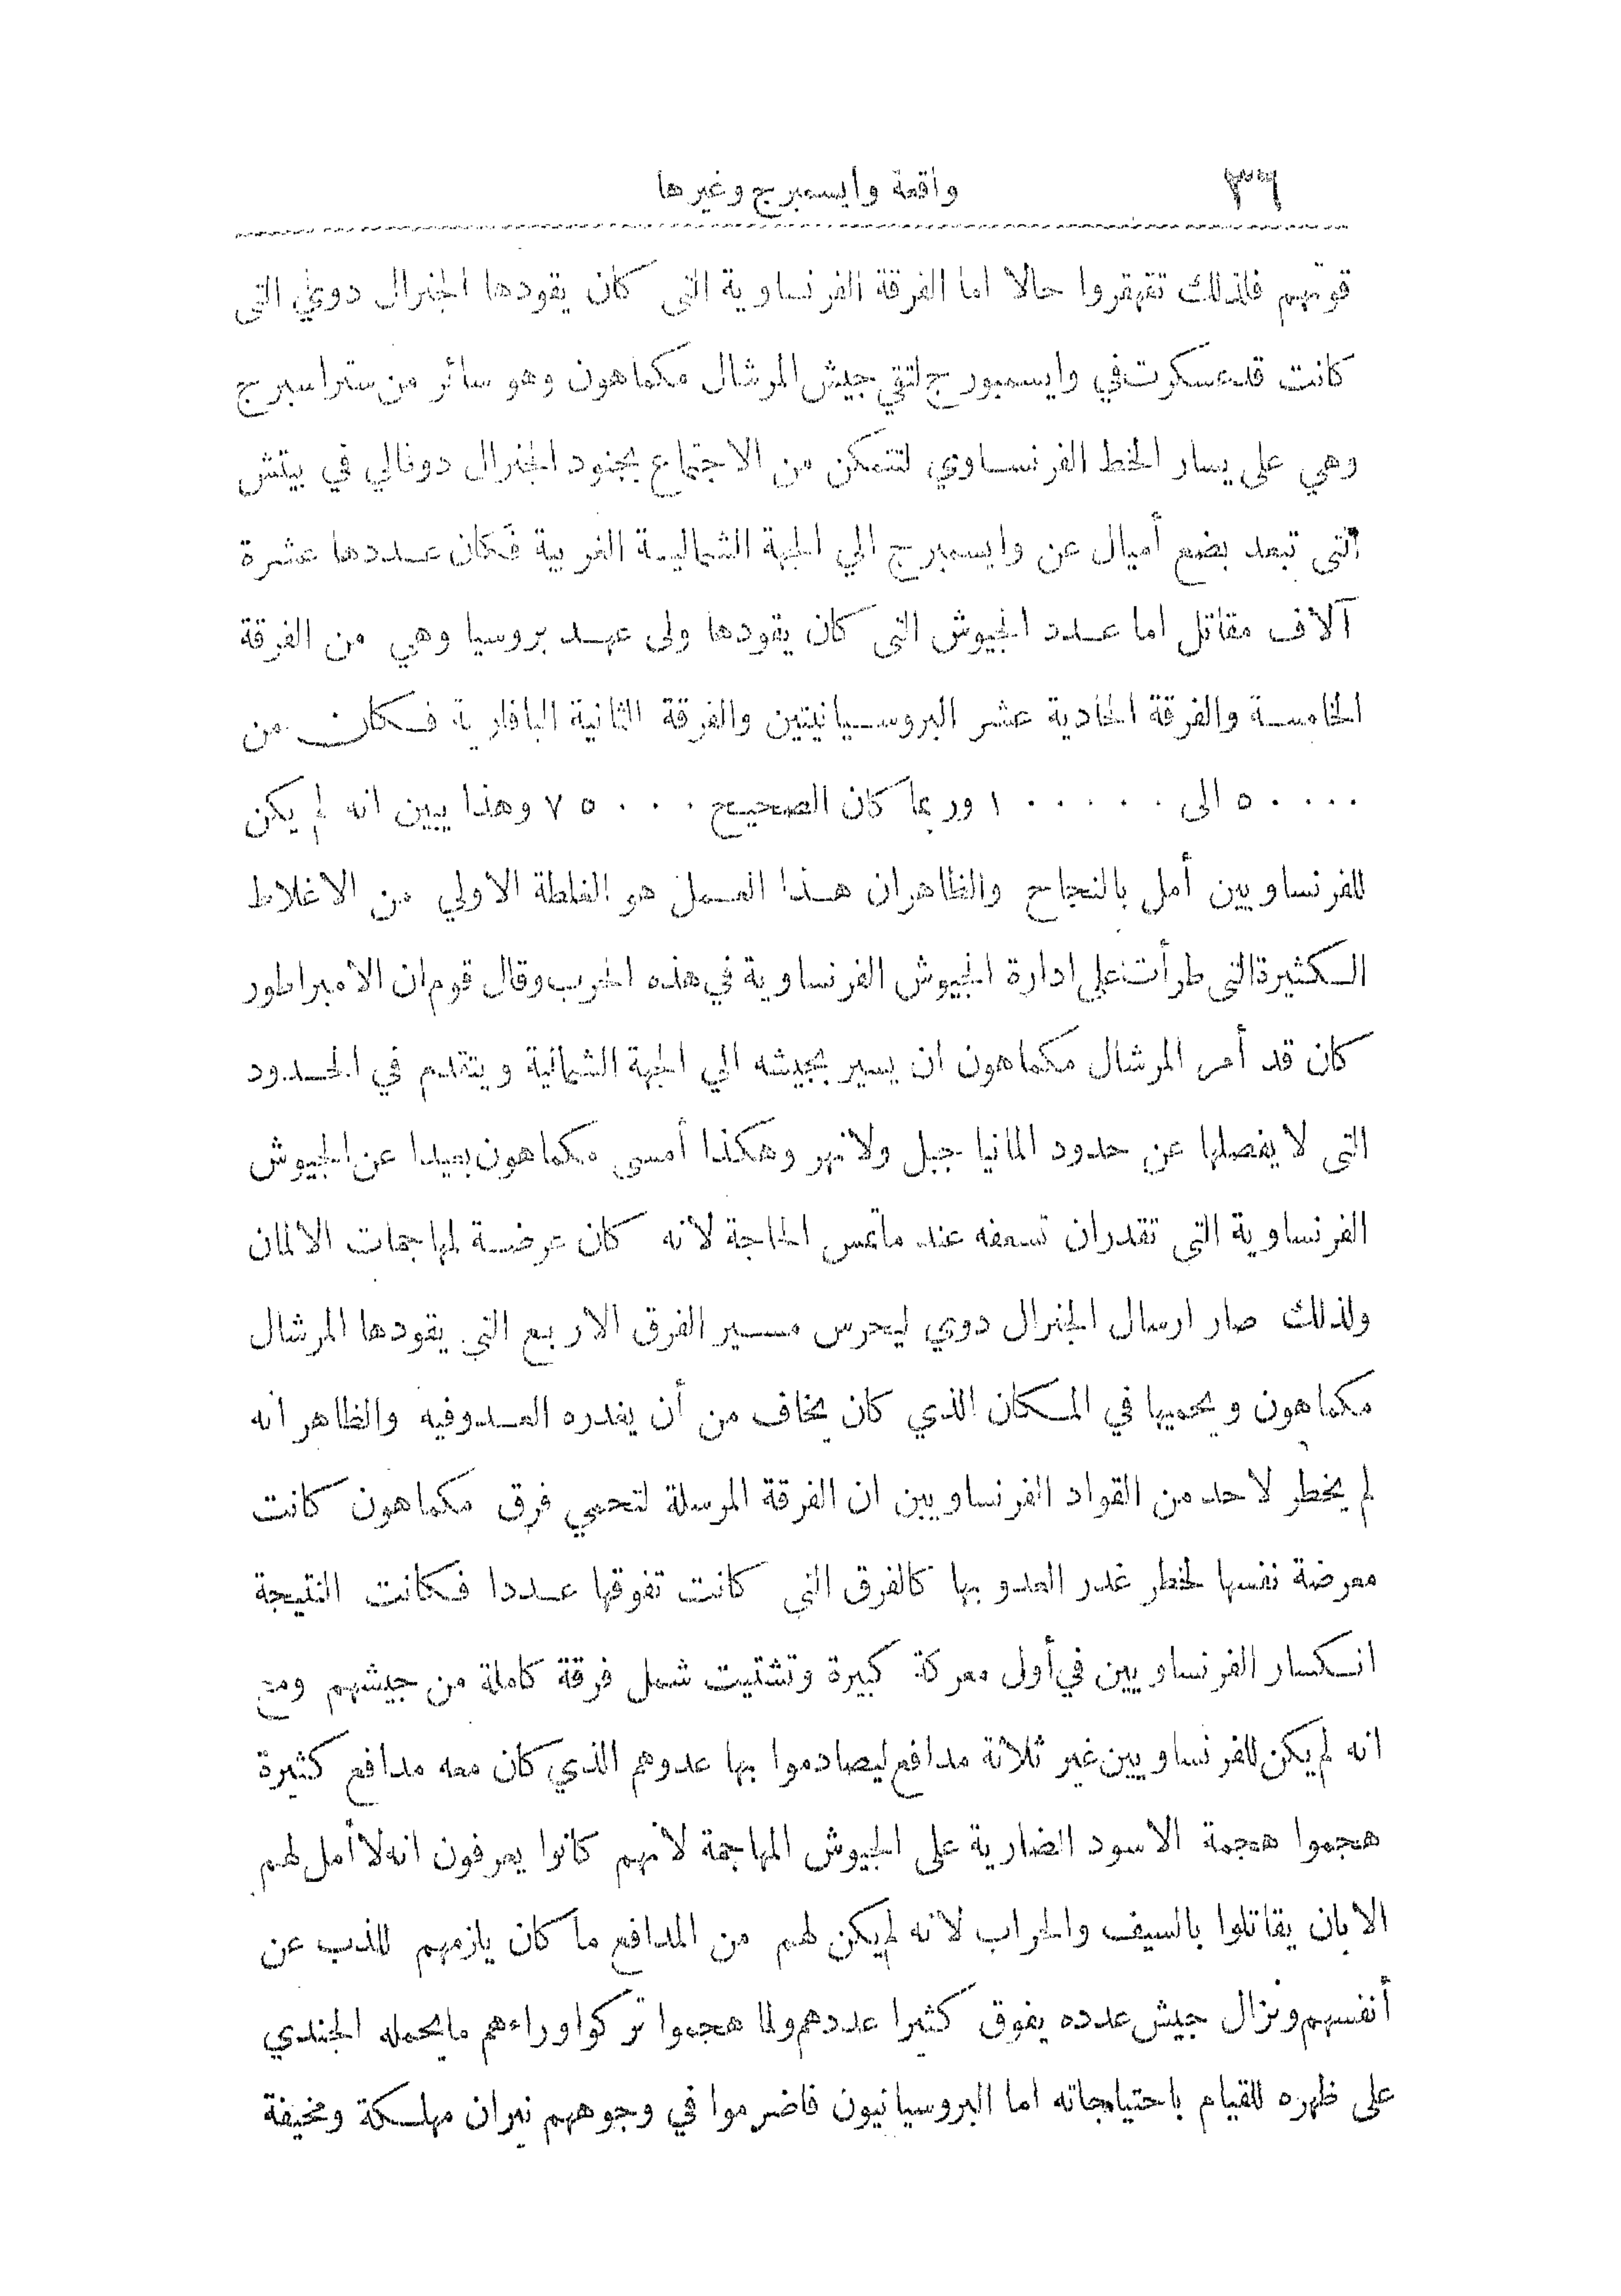 ٣٦ واقعة وايسمبرج وغيرها
قوتهم فلذلك تقهقروا حالا اما الفرقة الفرنساوية التى كان يقودها الجنرال دوي التى
كانت قد عسكرت في وايسمبورج لتقي جيش المرشال مكماهون وهو سائر من ستراسبرج
وهي على يسار الخط الفرنساوي لتتمكن من الاجتماع بجنود الجنرال دوفالي في بيتش
التى تبعد بضع أميال عن وايسمبرج الي الجهة الشمالية الغربية فكان عددها عشرة
آلاف مقاتل اما عدد الجيوش التى كان يقودها ولى عهد بروسيا وهي من الفرقة
الخامسة والفرقة الحادية عشر البروسيانيتين والفرقة الثانية البافارية فكان من
٥٠٠٠٠ الى ١٠٠٠٠٠ وربما كان الصحيح ٧٥٠٠٠ وهذا يبين انه لم يكن
للفرنساويين أمل بالنجاح والظاهر ان هذا العمل هو الغلطة الاولي من الاغلاط
الكثيرة التى طرأت على ادارة الجيوش الفرنساوية في هذه الحرب وقال قوم ان الامبراطور
كان قد أمر المرشال مكماهون ان يسير بجيشه الي الجهة الشمالية ويتقدم في الحدود
التى لا يفصلها عن حدود المانيا جبل ولا نهر وهكذا أمسى مكماهون بعيدا عن الجيوش
الفرنساوية التى تقدر ان تسعفه عند ما تمس الحاجة لانه كان عرضة لمهاجمات الالمان
ولذلك صار ارسال الجنرال دوي ليحرس مسير الفرق الاربع التي يقودها المرشال
مكماهون ويحميها في المكان الذي كان يخاف من أن يغدره العدو فيه والظاهر انه
لم يخطر لاحد من القواد الفرنساويين ان الفرقة المرسلة لتحمي فرق مكماهون كانت
معرضة نفسها لخطر غدر العدو بها كالفرق التي كانت تفوقها عددا فكانت النتيجة
انكسار الفرنساويين في أول معركة كبيرة وتشتيت شمل فرقة كاملة من جيشهم ومع
انه لم يكن للفرنساويين غير ثلاثة مدافع ليصادموا بها عدوهم الذي كان معه مدافع كثيرة
هجموا هجمة الاسود الضارية على الجيوش المهاجمة لانهم كانوا يعرفون انه لا أمل لهم
الا بان يقاتلوا بالسيف والحراب لانه لم يكن لهم من المدافع ما كان يلزمهم للذب عن
أنفسهم ونزال جيش عدده يفوق كثيرا عددهم ولما هجموا تركوا وراءهم ما يحمله الجندي
على ظهره للقيام باحتياجاته اما البروسيانيون فاضرموا في وجوههم نيران مهلكة ومخيفة